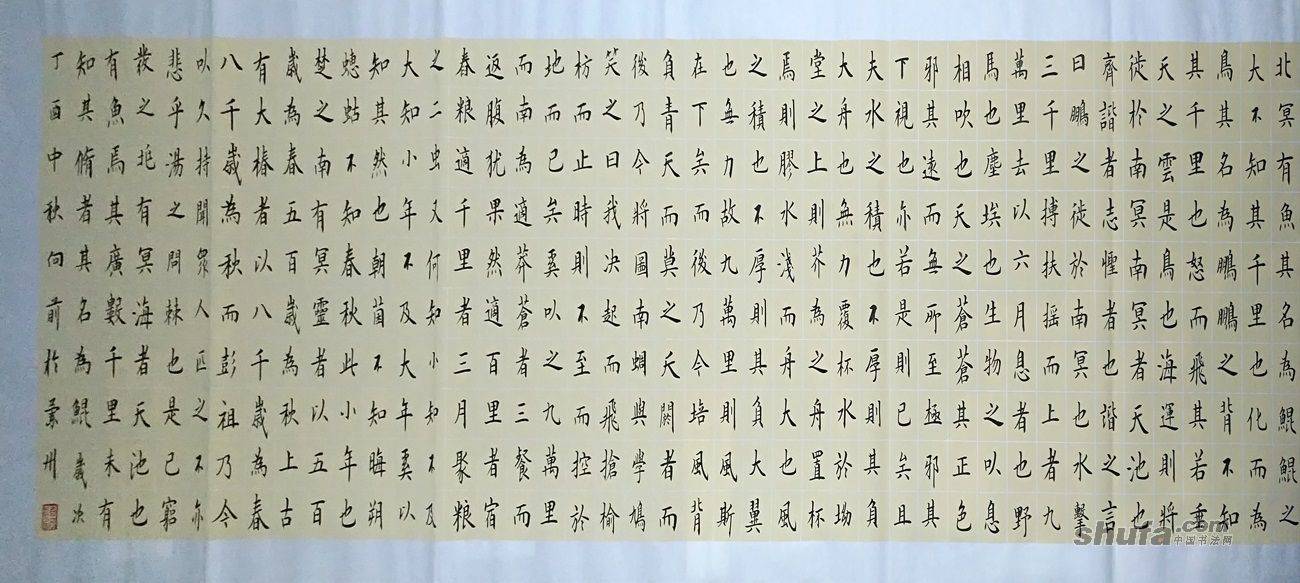 北冥有魚其名為鯤鯤之
大不知其千里也化而為
鳥其名為鵬鵬之背不知
其千里也怒而飛其若垂
天之雲是鳥也海運則將
徙於南冥南冥者天池也
齊諧者志怪者也諧之言
曰鵬之徙於南冥也水擊
三千里搏扶摇而上者九
萬里去以六月息者也野
馬也塵埃也生物之以息
相吹也天之蒼蒼其正色
邪其遠而無所至極邪其
下視也亦若是則已矣且
夫水之積也不厚則其負
大舟也無力覆杯水於坳
堂之上則芥為之舟置杯
焉則膠水淺而舟大也風
之積也不厚則其負大翼
也無力故九萬里則風斯
在下矣而後乃今培風背
負青天而莫之夭閼者而
後乃今將圖南蜩與學鳩
笑之曰我决起而飛搶榆
枋而止時則不至而控於
地而已矣奚以之九萬里
而南為適莽蒼者三餐而
返腹犹果然適百里者宿
春粮適千里者三月聚粮
之二虫又何知小知不及
大知小年不及大年奚以
知其然也朝菌不知晦朔
蟪蛄不知春秋此小年也
楚之南有冥靈者以五百
歲為春五百歲為秋上古
有大椿者以八千歲為春
八千歲為秋而彭祖乃今
以久持聞眾人匹之不亦
悲乎湯之問棘也是已窮
發之北有冥海者天池也
有魚焉其廣數千里未有
知其脩者其名為鯤歲次
丁酉中秋向前於州
shufa.com
中国书法网